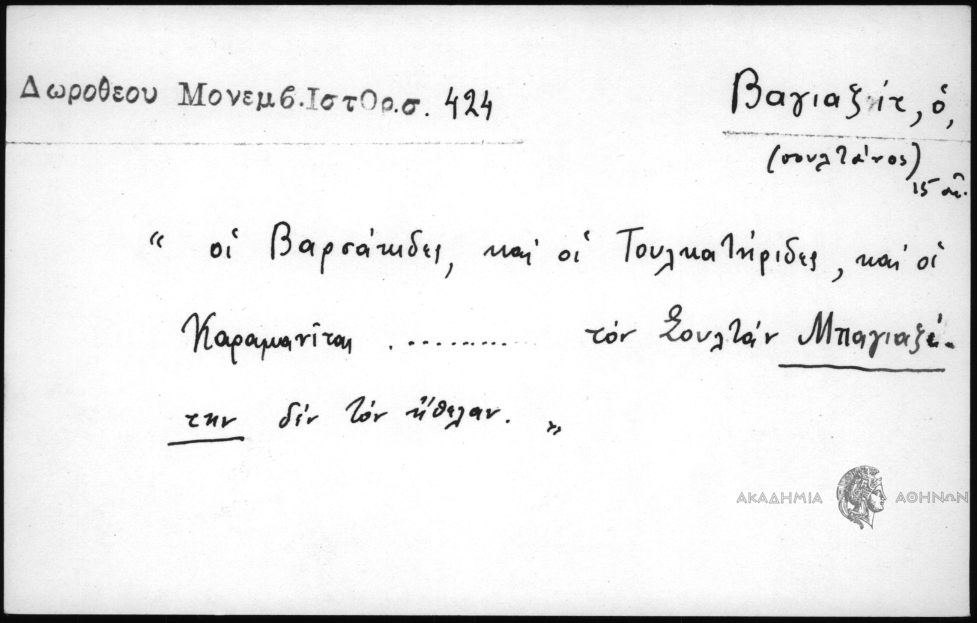 Δωροθεου Μονεμβ.Ιστορ.σ. 424
Βαγιαζὶτ, ὁ,
(σουλτάνος)
15 αἰ.
“ οἱ Βαρσάκιδες, καὶ οἱ Τουλκατήριδες, καὶ οἱ
Καραμανῖται .......... τὸν Σουλτάν Μπαγιαζέ-
την δέν τόν ἤθελαν. „
ΑΚΑΔΗΜΙΑ ΑΘΗΝΩΝ